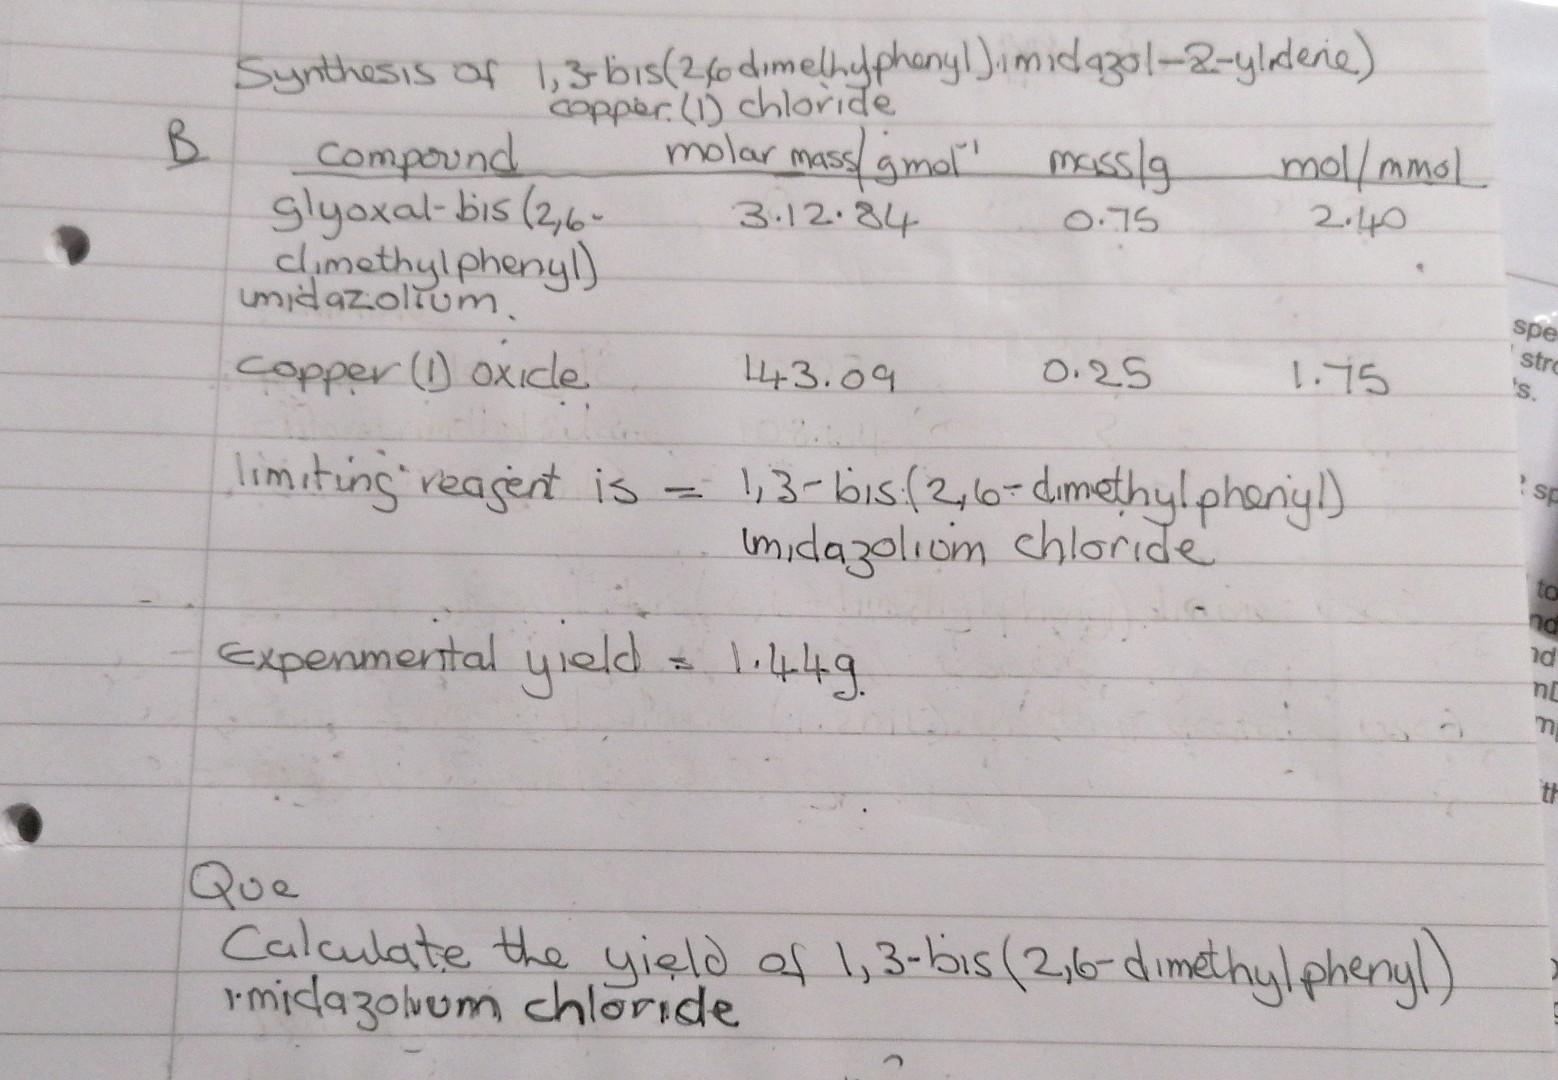 Synthesis of 1,3-bis(2,6dimethylphenyl)imidazol-2-ylidene)
copper.(1) chloride
B
compound molar mass/gmol⁻¹ mass/g mol/mmol
glyoxal-bis(2,6- 3.12.84 0.75 2.40
dimethylphenyl)
imidazolium.
copper (1) oxide 143.09 0.25 1.75
limiting reagent is = 1,3-bis(2,6-dimethylphenyl)
imidazolium chloride
Experimental yield = 1.44g.
Que
Calculate the yield of 1,3-bis(2,6-dimethylphenyl)
imidazolium chloride
spe
stro
's.
: sp
to
nd
nd
th